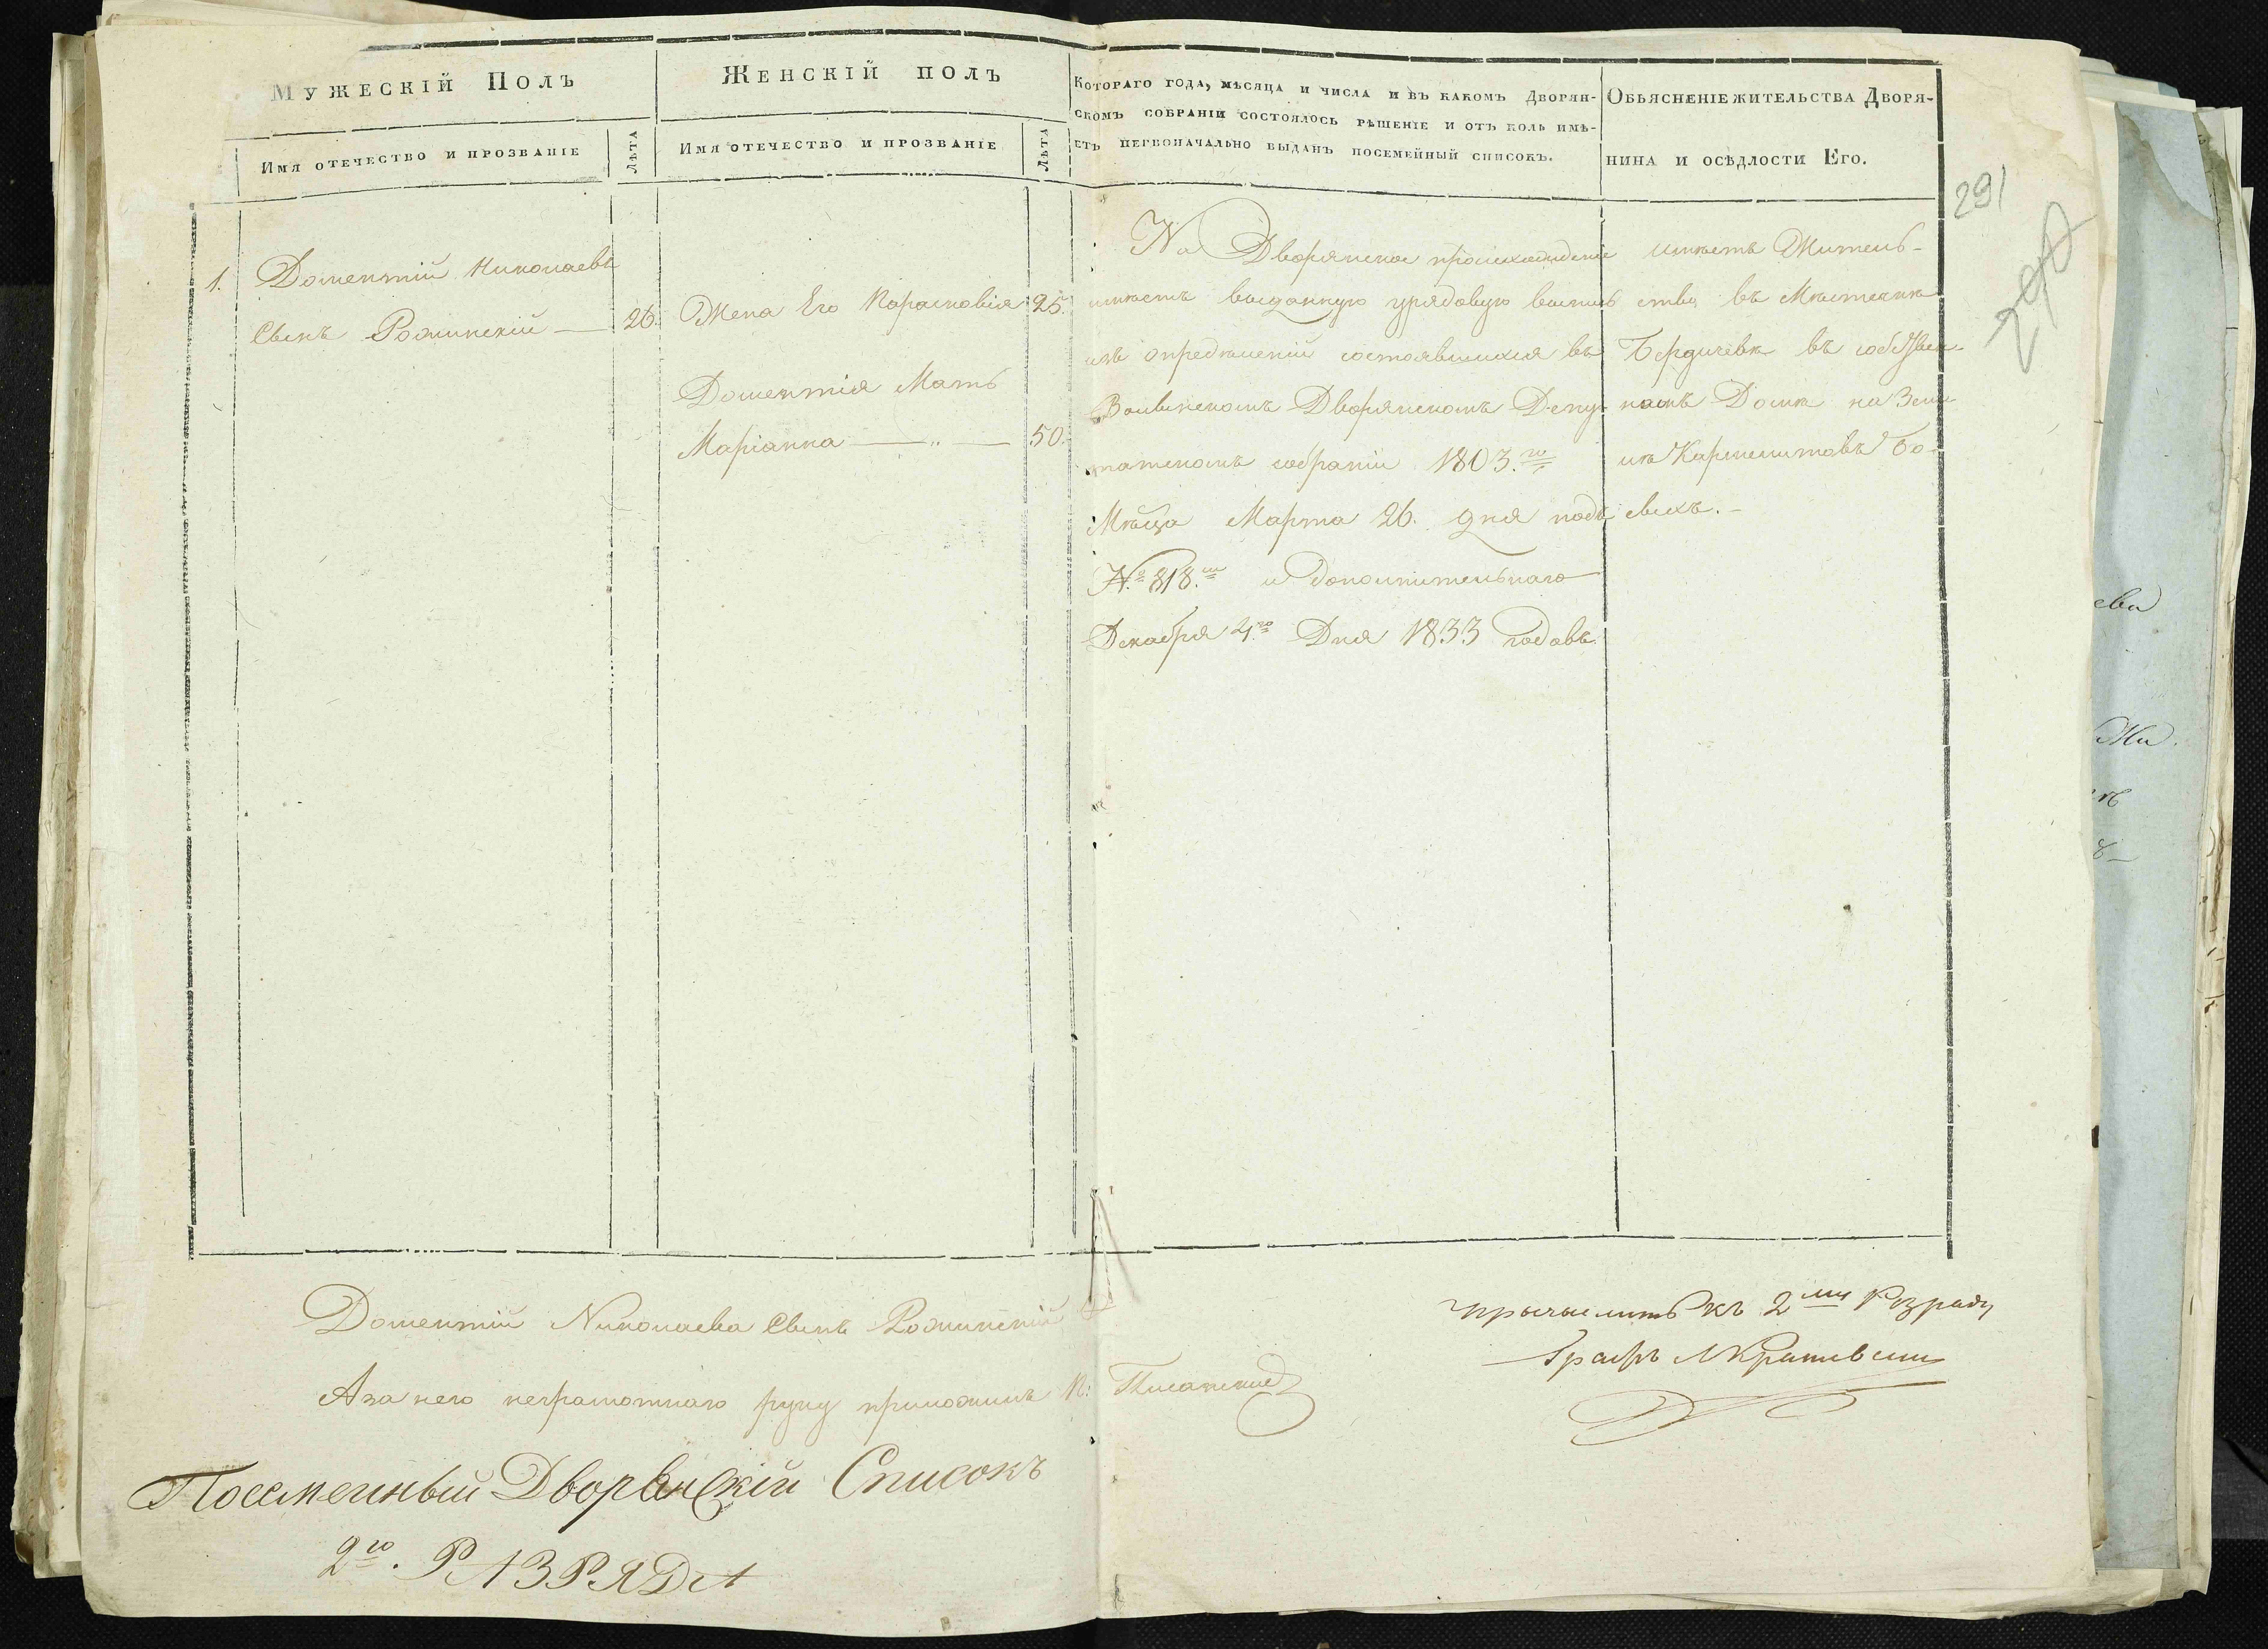 Мужескій Полъ
Имя отечество и прозваніе
Лѣта
Женскій полъ
Имя отечество и прозваніе
Лѣта
Котораго года, мѣсяца и числа и въ какомъ Дворян-
скомъ собраніи состоялось рѣшеніе и отъ коль имѣ-
етъ первоначально выданъ посемейный списокъ.
Обьясненіе жительства Дворя-
нина и осѣдлости Его.
291
290
1. Доментій Николаевъ
Сынъ Рожинскій — 26.
Жена Его Парасковія 25.
Доментія Мать
Маріанна — „ — 50.
На Дворянское происхожденіе
имѣетъ выданную урядовую выпись
изъ опредѣленій состоявшихся въ
Волынскомъ Дворянскомъ Депу-
татскомъ собраніи 1803.го
Мѣсца Марта 26. дня подъ
№ 818.мъ и дополнительнаго
Декабря 4.го Дня 1833 годовъ.
имѣетъ Житель-
ство въ Мѣстечкѣ
Бердичевѣ въ собствен-
номъ Домѣ на Зем-
лѣ Кармелитовъ Бо-
сыхъ.-
Доментій Николаева Сынъ Рожинскій
А за него неграмотнаго руку приложилъ П:
Писанский
причислить къ 2му Розряду
Графъ
Посемейный Дворянскій Списокъ
2го. РАЗРЯДА
ева
Жи.